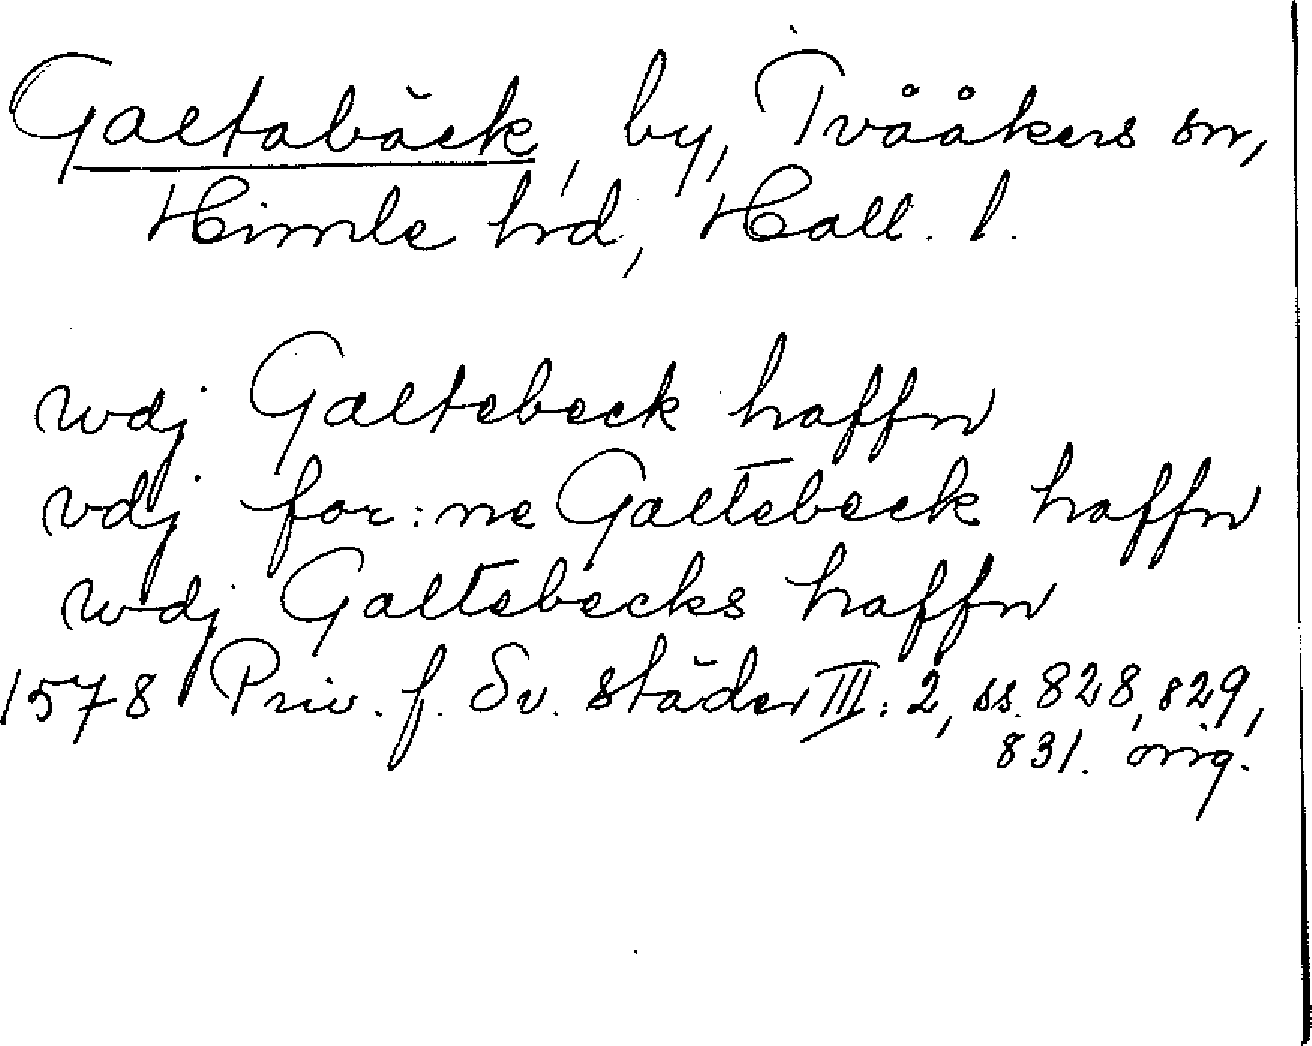 Galtabäck, by, Tvååkers sn,
Himle hrd, Hall. l.
wdj Galtebeck haffn
vdj for:ne Galtebeck haffn
wdj Galtebecks haffn
1578 Priv. f. Sv. städer III: 2, ss. 828, 829,
831. orig.